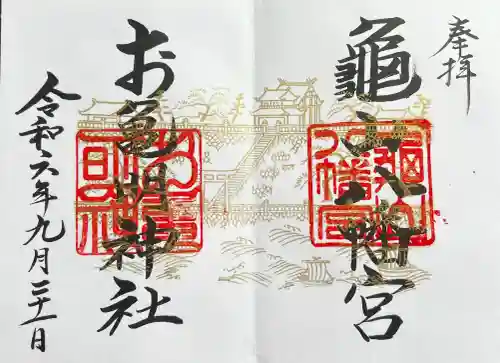 奉拝
龜山八幡宮
お亀明神社
令和六年九月二十一日